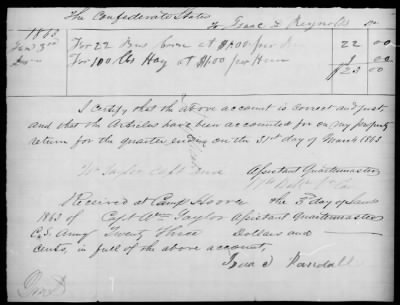 The Confederate States
To Isaac D Reynolds Dr
1863
Jany 3rd For 22 Bus Corn at $1.00 per Bus 22 00
For 100 lbs Hay at $1.00 per Hun 1 00
$23 00
I certify that the above account is correct and just
and that the Articles have been accounted for on my property
return for the quarter ending on the 31st day of March 1863
Wm Taylor Capt and
Assistant Quartermaster
Received at Camp Moore the 3d day of
1863 of Capt Wm Taylor Assistant Quartermaster
C.S. Army Twenty Three Dollars and
Cents, in full of the above account,
Randall